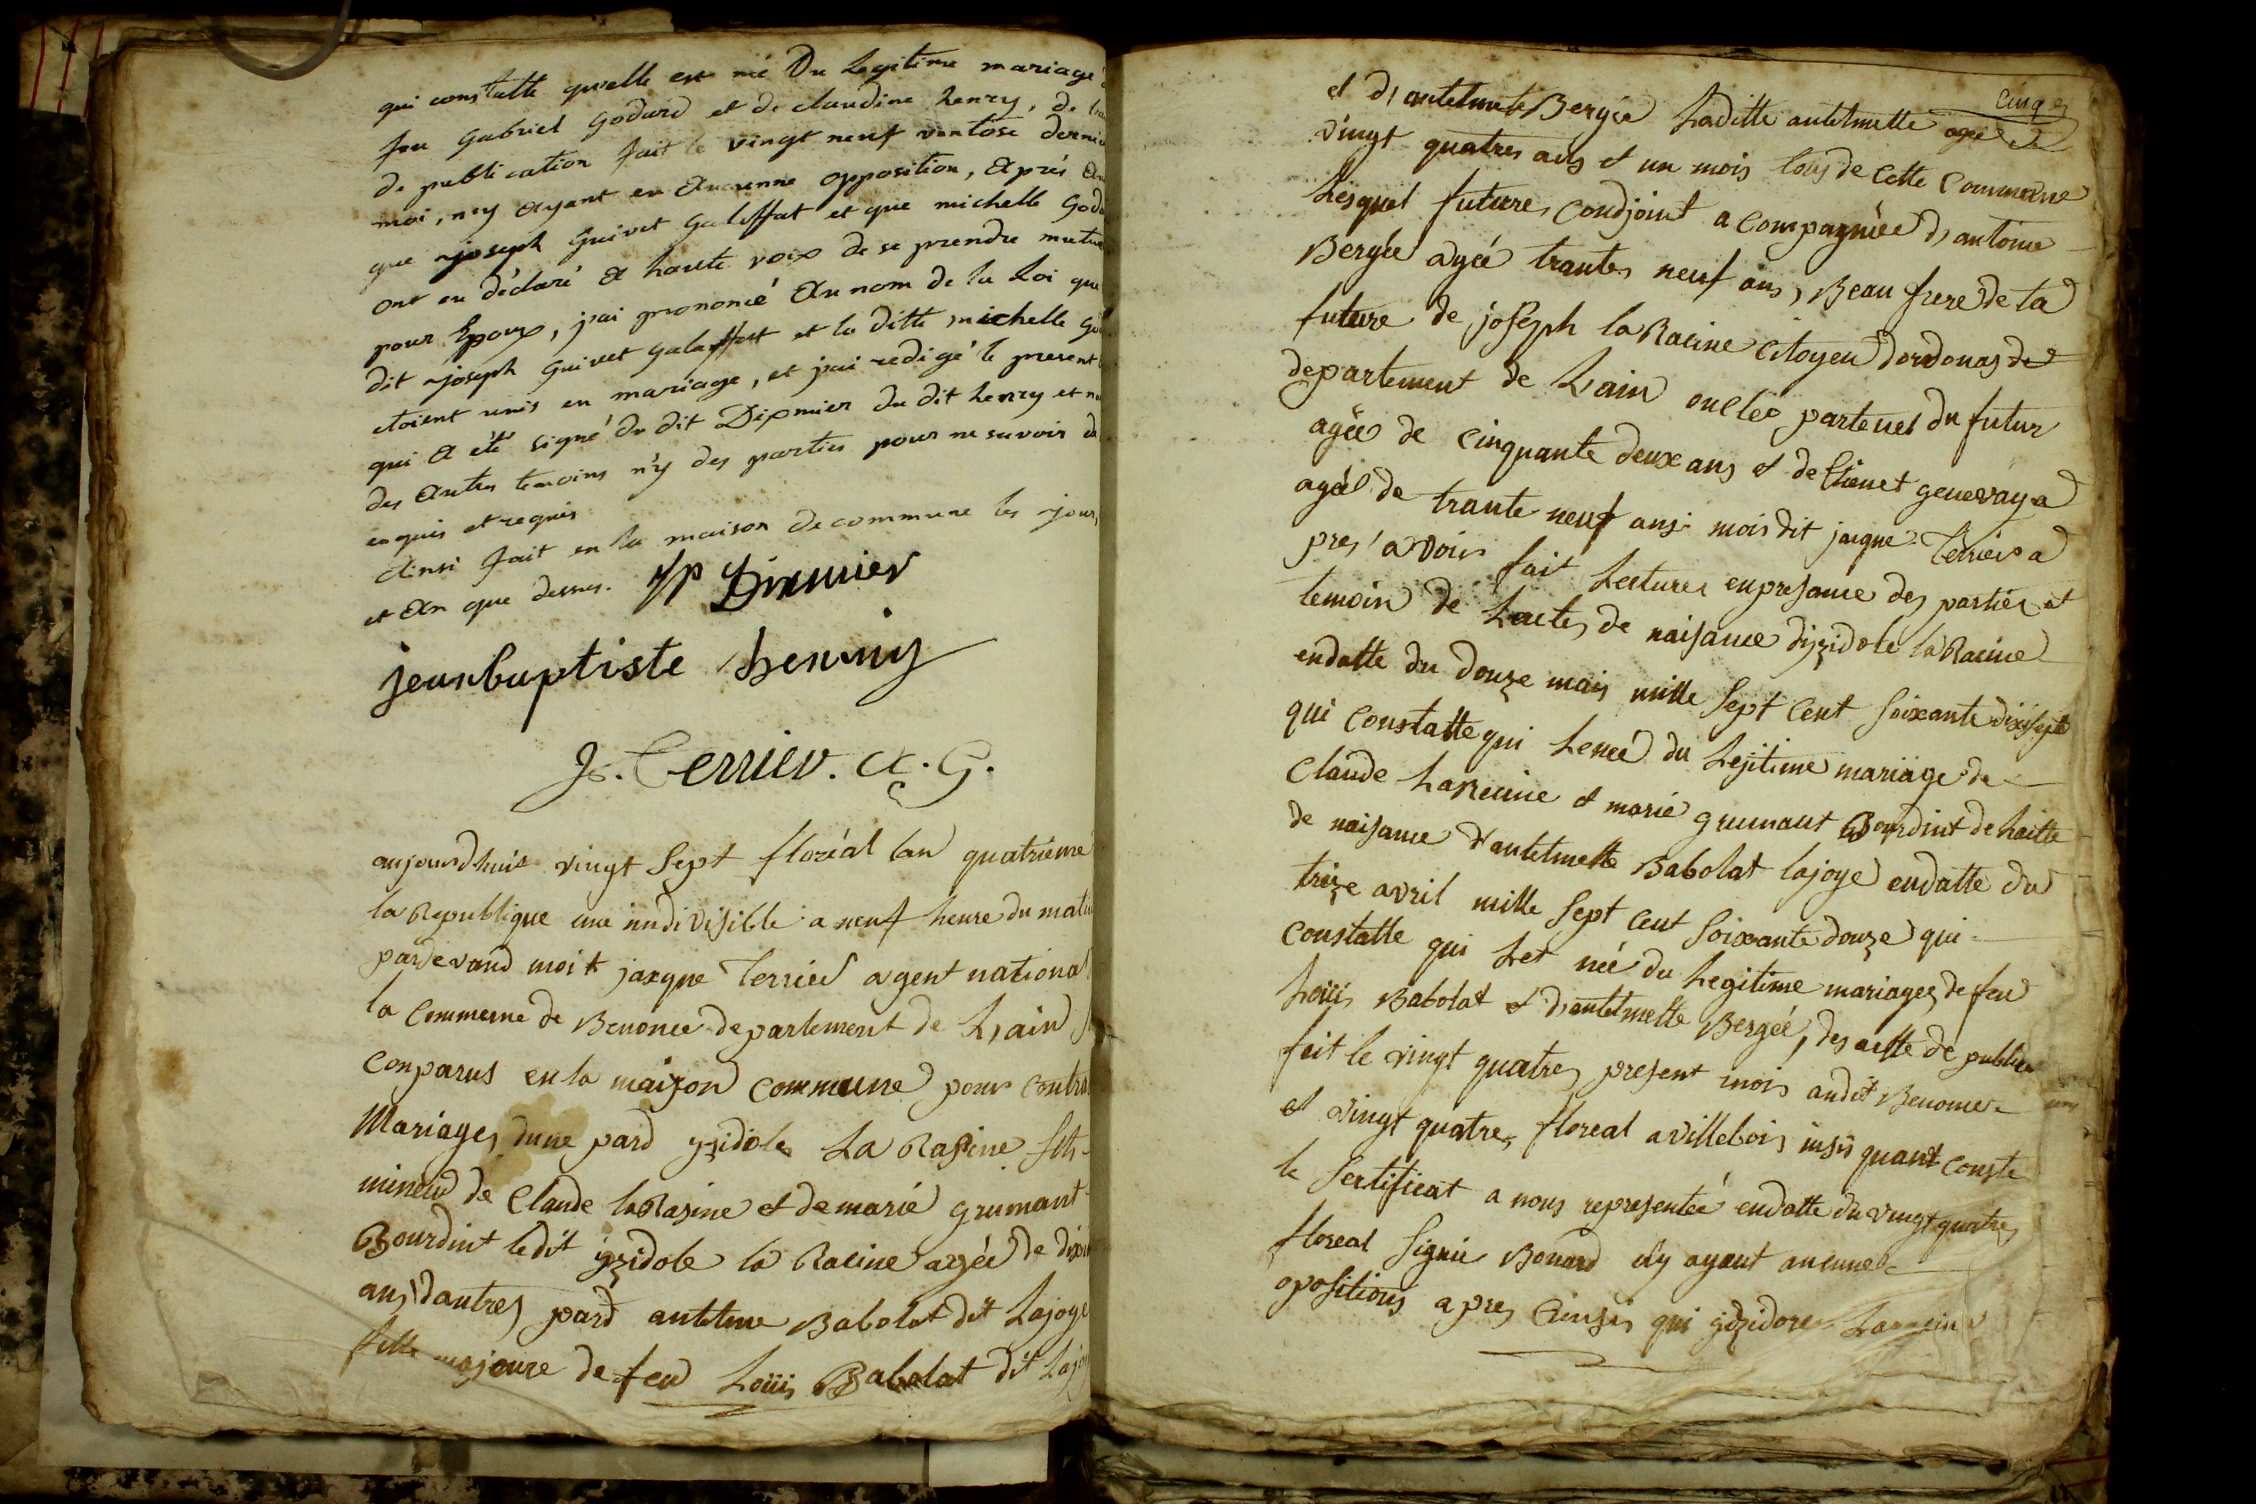 qui constatte qu'elle est né Du Legitime mariage
feu Gabriel Godard et de claudine henry, de
de publication fait le vingt neuf vantose dernie
moi, n'y ayant eu Aucunne opposition, Après
que joseph Guivet Galaffat et que michelle God
ont eu déclaré A haute voix de se prendre mutu
pour Epoux, j'ai prononcé Au nom de la Loi que
dit joseph Guivet galaffat et la ditte michelle Go
etoient unis en mariage, et j'ai redigé le present
qui A été signé du dit Dixmier du dit henry et n
des Autres temoins n'y des parties pour ne savoir
enquis et requis
Ainsi fait en la maison de commune les jour,
et An que dessus. JP Dixmier
jean baptiste henriy
Js. Terrier. A. G.
aujourdhuis vingt Sept floréal lan quatrieme
la Republique une indivisible a neuf heure du matin
pardevand moit jaxque Terrier agent national
la Commerne de Benonce departement de Lain
Comparus en la maizon Commune pour contra
Mariages dune pard yzidole La Rasine fils
mineur de Claude la Rasine et de marié grumant
Bourdint ledit yzidole la Racine agée de dix
ans dautres pard antelme Babolat dit Lajoye
fille majeure de feu Loüis Babolat dit Lajoy
Cinq
et d'antelmette Bergée Laditte antelmette agée de
vingt quatres ans et un mois tous de cette Commune
Lesquel futures Condjoint acompagniée d'antoine
Bergée agée trantes neuf ans, Beau frere de la
future de joseph la Racine Citoyen dordonas de
departement de Lain oncles parternel du futur
agée de Cinquante deux ans et de genevaye
agée de trante neuf ans mois dit jacque Terrier a
pres avoir fait Lectures en presance des parties et
temoin de Lactes de naisance dizidole la Racine
endatte du douze mais mille Sept Cent Soixante dixsept
qui Constatte qui Lenée du Lejitime mariage de
Claude LaReinie et marié grumant Bourdint de Laitte
de naisance d'antelmette Babolat lajoye endatte du
trize avril mille Sept Ceut Soixante douze qui
Constatte qui Let née du Legitime mariages de feu
Loüis Babolat et d'antelmette Bergée, des actte de public
fait le vingt quatres present mois audit Benonce
et vingt quatres floreal a villebois insis quant conste
le Sertificat a nous representée endatte du vingt quatres
floreal Signié Bonard n'y ayant aucune
opositions apres Cinsis qui yzidore Larracine